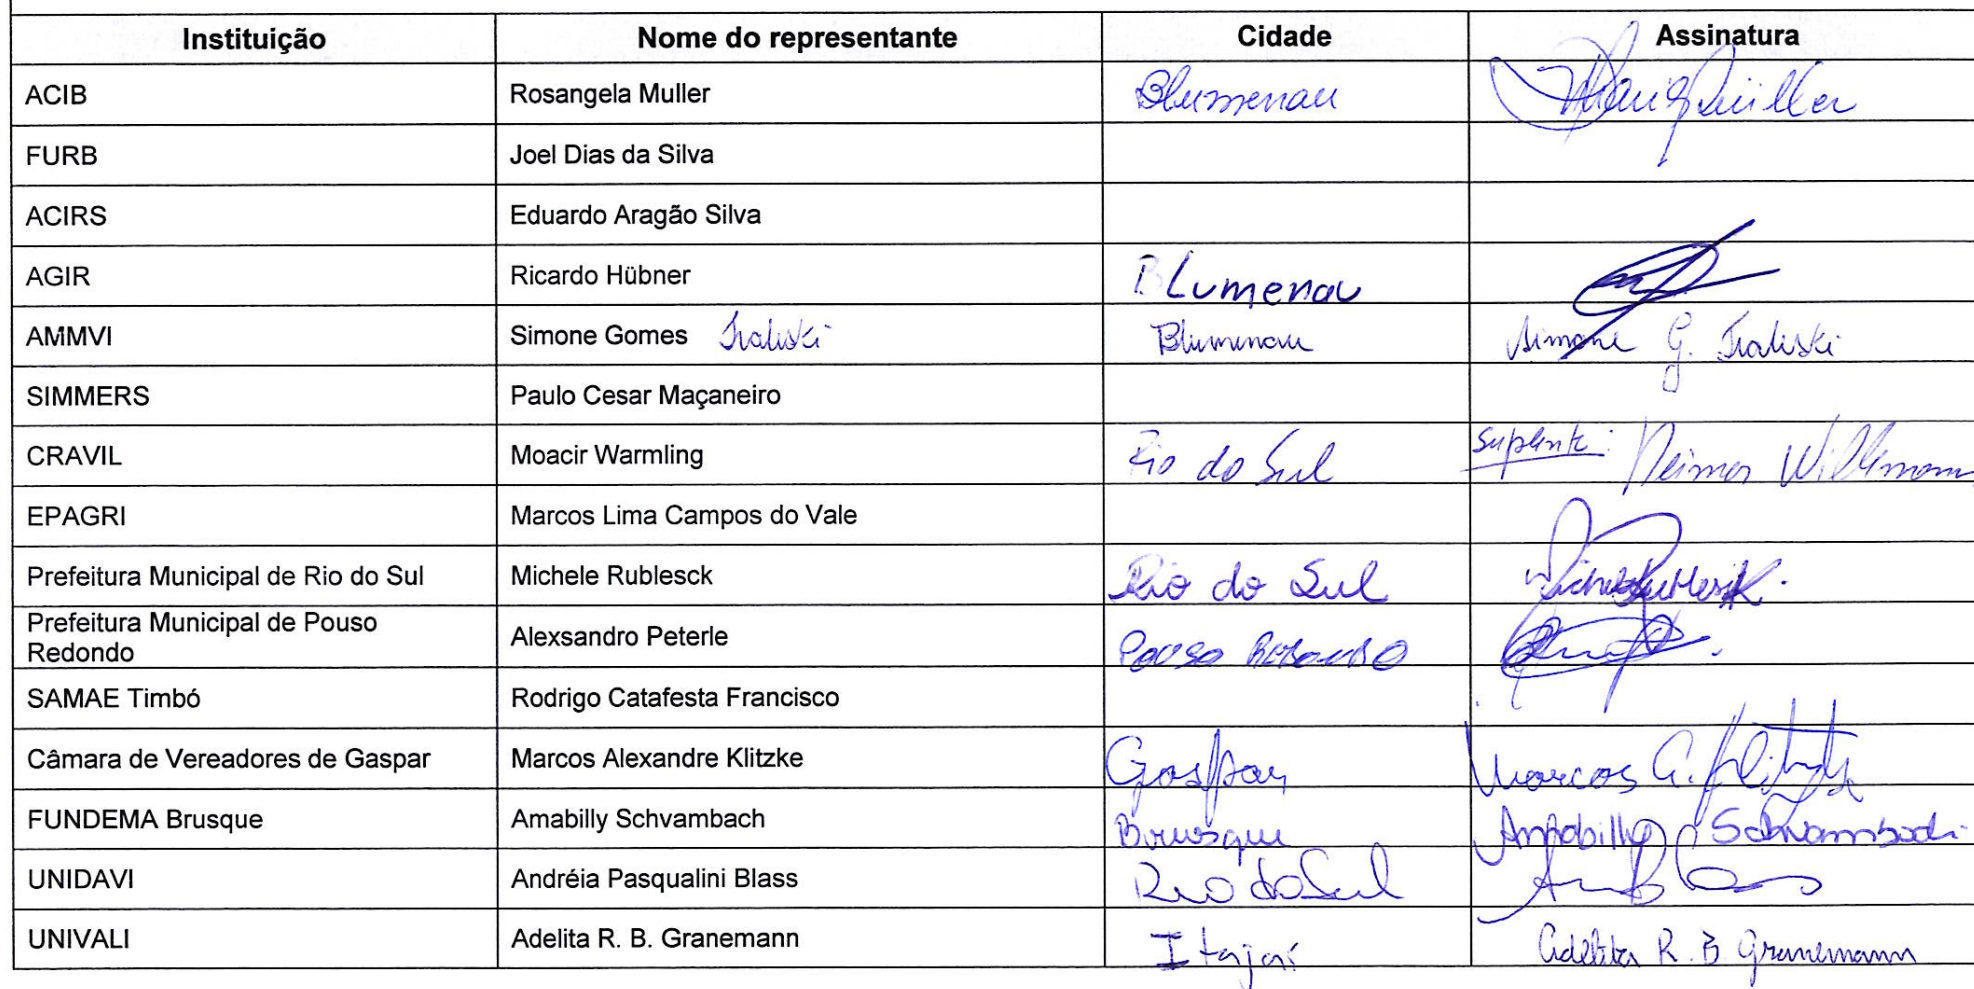 Instituição Nome do representante Cidade Assinatura
ACIB Rosangela Muller Blumenau
FURB Joel Dias da Silva
ACIRS Eduardo Aragão Silva
AGIR Ricardo Hübner Blumenau
AMMVI Simone Gomes Blumenau Simone G.
SIMMERS Paulo Cesar Maçaneiro
CRAVIL Moacir Warmling Rio do Sul Suplente:
EPAGRI Marcos Lima Campos do Vale
Prefeitura Municipal de Rio do Sul Michele Rublesck Rio do Sul
Prefeitura Municipal de Pouso
Redondo Alexsandro Peterle Pouso Redondo
SAMAE Timbó Rodrigo Catafesta Francisco
Câmara de Vereadores de Gaspar Marcos Alexandre Klitzke Gaspar Marcos A. Klitzke
FUNDEMA Brusque Amabilly Schvambach Brusque Amabilly Schvambach
UNIDAVI Andréia Pasqualini Blass Rio do Sul
UNIVALI Adelita R. B. Granemann Itajaí Adelita R. B. Granemann